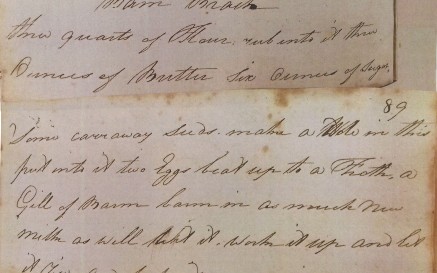 Barm Brack
three quarts of Flour, rub into it three
Ounces of Butter Six Ounces of Sugar
89
Some carraway seeds. make a Hole in this
put into it two Eggs beat up to a Froth, a
Gill of Barm barm in as much New
milk as will wet it. work it up and let
it